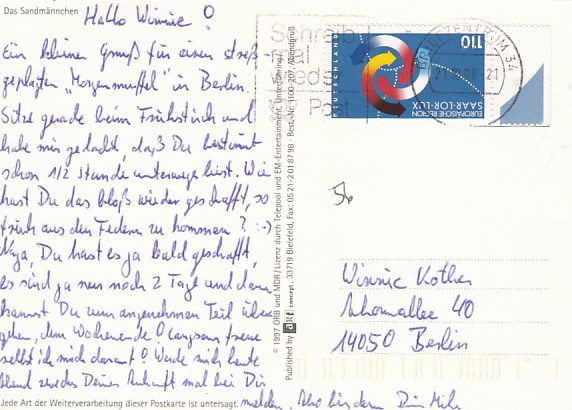 Das Sandmännchen
Hallo Winnie !
Ein kleiner Gruß für einen streß-
geplagten "Morgenmuffel" in Berlin.
Sitze gerade beim Frühstück und
habe mir gedacht, daß Du bestimmt
schon 1/2 Stunde unterwegs bist. Wie
hast Du das bloß wieder geschafft, so
früh aus den Federn zu kommen? :-)
Naja, Du hast es ja bald geschafft,
es sind ja nur noch 2 Tage und dann
kannst Du zum angenehmen Teil über
gehen, dem Wochenende! Langsam freue
selbst ich mich darauf! Werde mich heute
Abend Deiner Ankunft mal bei Dir
melden. Also bis dann Dein
Jede Art der Weiterverarbeitung dieser Postkarte ist untersagt.
© 1997 ORB und MDR / Lizenz durch Telepool und EM-Entertainment, Unterföhring
Published by art concept, 33719 Bielefeld, Fax: 05 21-2 01 87 98 · Best.-Nr. 1100-207, Abendgruß
Schreib
mal
wieder
Post
110
EUROPÄISCHE REGION
SAAR-LOR-LUX
34
56
Winnie
40
14050 Berlin